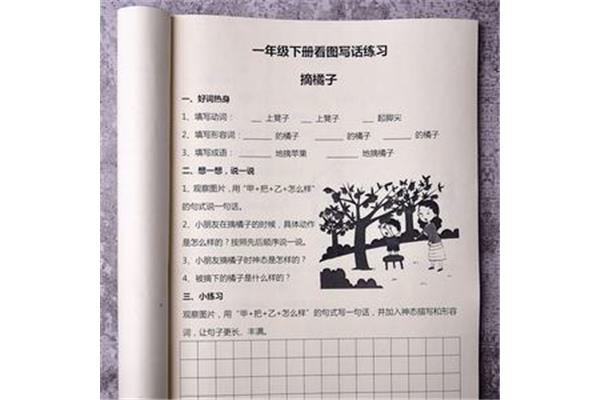 一年级下册看图写话练习
摘橘子
一、好词热身
1、填写动词： __ 上凳子 __ 上凳子 __ 起脚尖
2、填写形容词：______ 的橘子 ______ 的橘子 ______ 的橘子
3、填写成语：______ 地摘苹果 ______ 地摘橘子
二、想一想，说一说
1、观察图片，用“甲+把+乙+怎么样”
的句式说一句话。
2、小朋友在摘橘子的时候，具体动作
是怎么样的？按照先后顺序说一说。
3、小朋友摘橘子时神态是怎样的？
4、被摘下的橘子是什么样的？
三、小练习
观察图片，用“甲+把+乙+怎么样”的句式写一句话，并加入神态描写和形容
词，让句子更长、丰满。